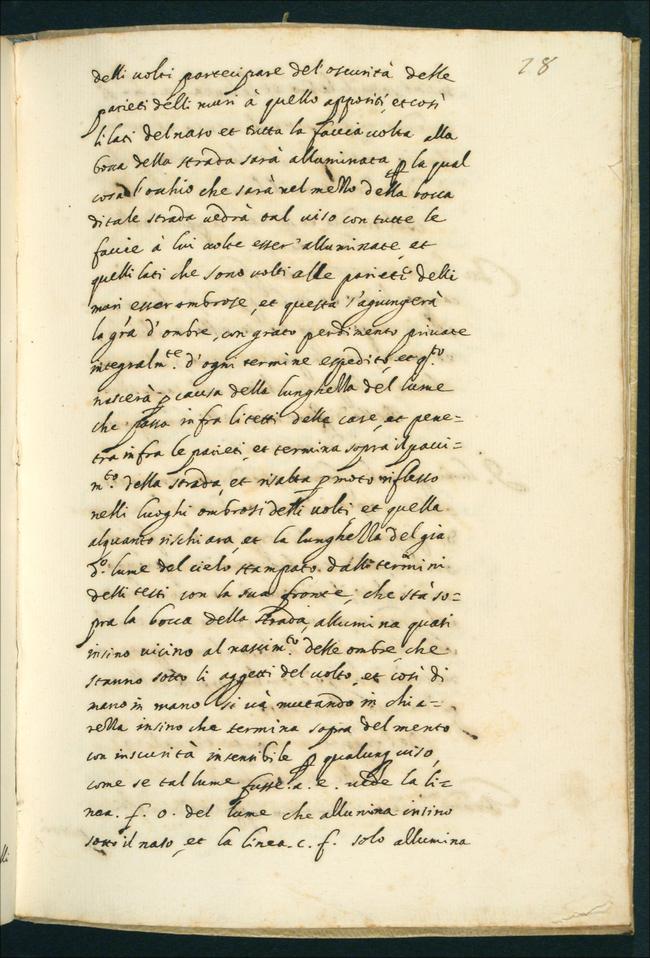 28
delli uolti partecipare del'oscurità delle
parieti delli muri à quello appositi, et così
li lati del naso et tutta la faccia uolta alla
bocca della strada sarà alluminata ꝑ la qual
cosa l'occhio che sarà nel mezzo della bocca
di tale strada uedrà tal uiso con tutte le
faccie à lui uolte esser'alluminate, et
quelli lati che sono uolti alle parieti delli
muri esser ombrose, et questa s'agiungerà
la gra d'ombre, con grato perdimento priuate
integralmte. d'ogni termine espedito, et qsto
nascerà ꝑ causa della lunghezza del lume
che passa infra li tetti delle case, et pene=
tra infra le parieti, et termina sopra il paui=
mto. della strada, et risalta ꝑ moto riflesso
nelli luoghi ombrosi delli uolti, et quella
alquanto rischiara, et la lunghezza del gia
do. lume del cielo stampato dalli termini
delli tetti con la sua fronte, che stà so=
pra la bocca della strada, allumina quasi
insino uicino al nascimto. delle ombre, che
stanno sotto li aggetti del uolto, et così di
mano in mano si uà mutando in chia=
rezza insino che termina sopra del mento
con inscurità insensibile ꝑ qualunq uiso,
come se tal lume fusse .a. e. uede la li=
nea. f. o. del lume che allumina insino
sotto il naso, et la linea .c. f. solo allumina